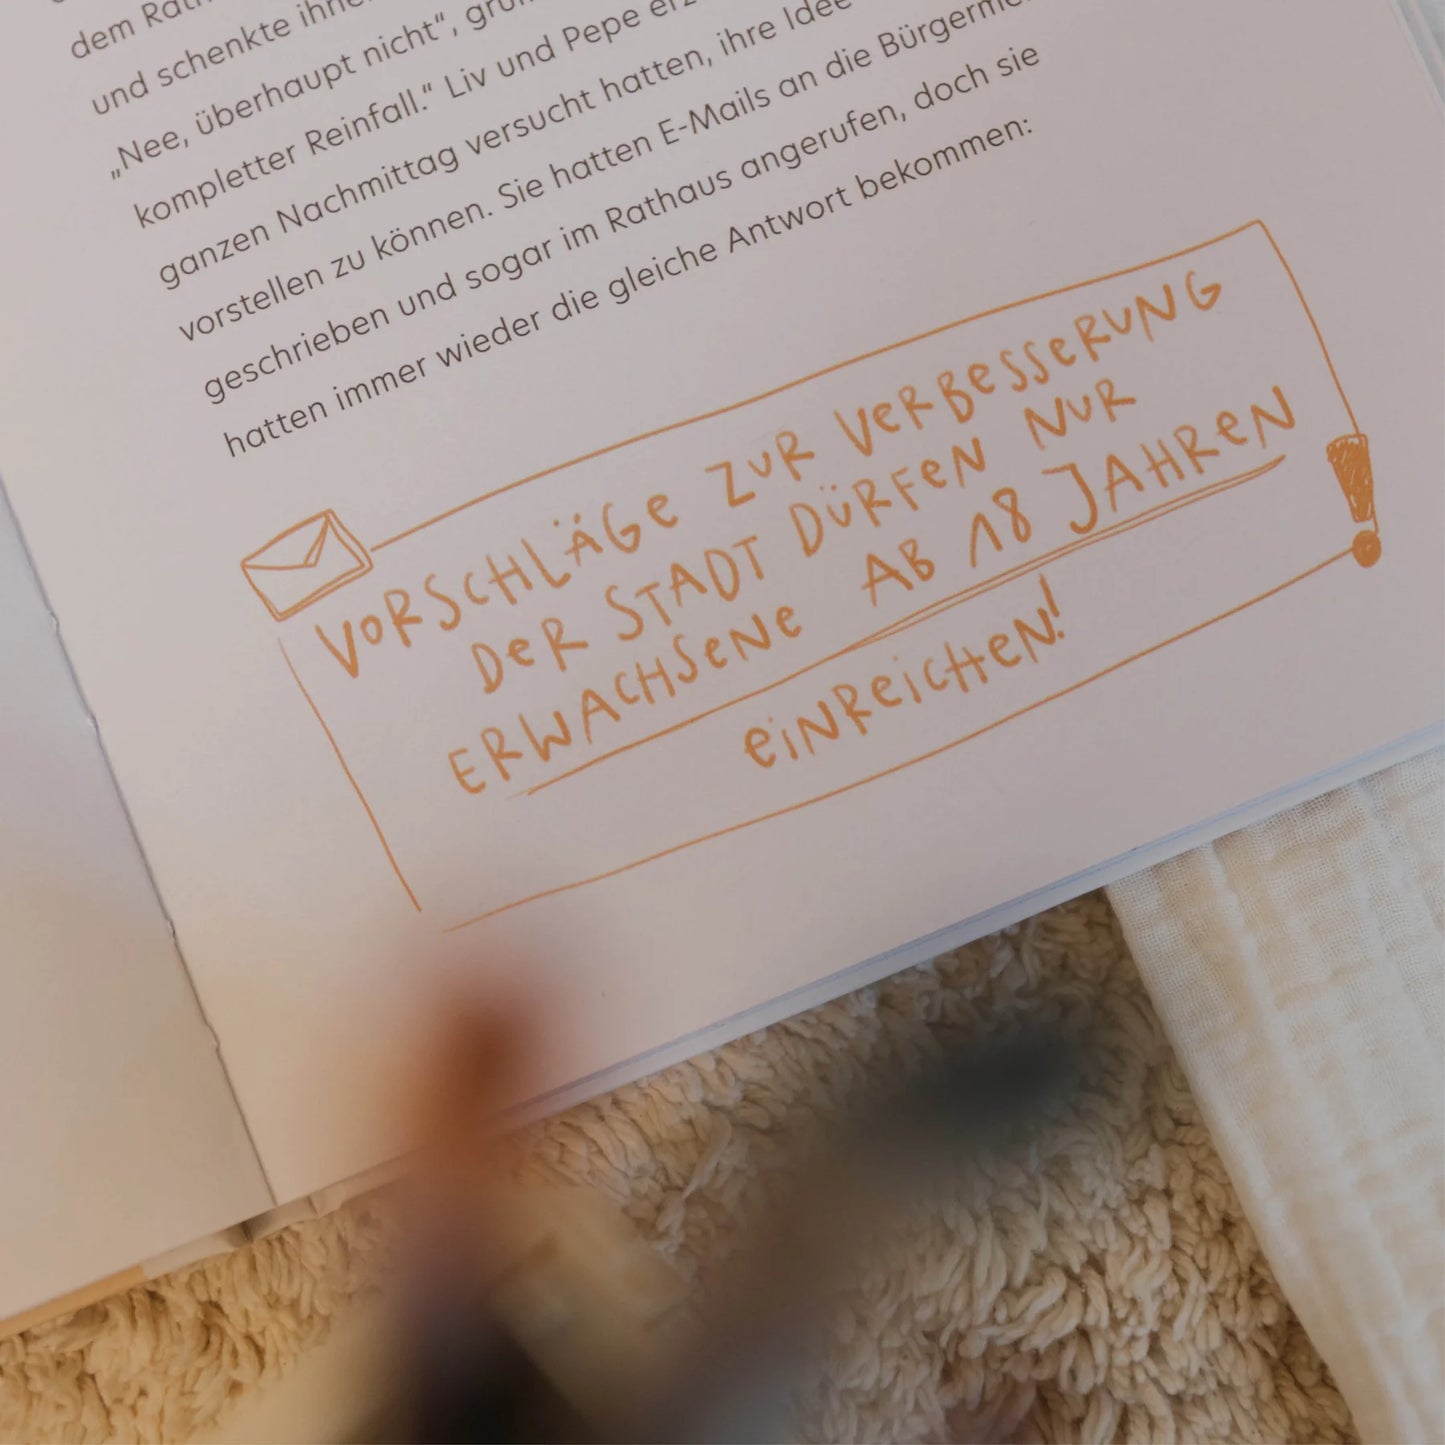 dem Rath
und schenkte ihne
„Nee, überhaupt nicht“, gru
kompletter Reinfall.“ Liv und Pepe erz
ganzen Nachmittag versucht hatten, ihre Idee
vorstellen zu können. Sie hatten E-Mails an die Bürgerme
geschrieben und sogar im Rathaus angerufen, doch sie
hatten immer wieder die gleiche Antwort bekommen:
VORSCHLÄGE ZUR VERBESSERUNG
DER STADT DÜRFEN NUR
ERWACHSENE AB 18 JAHREN
EINREICHEN!